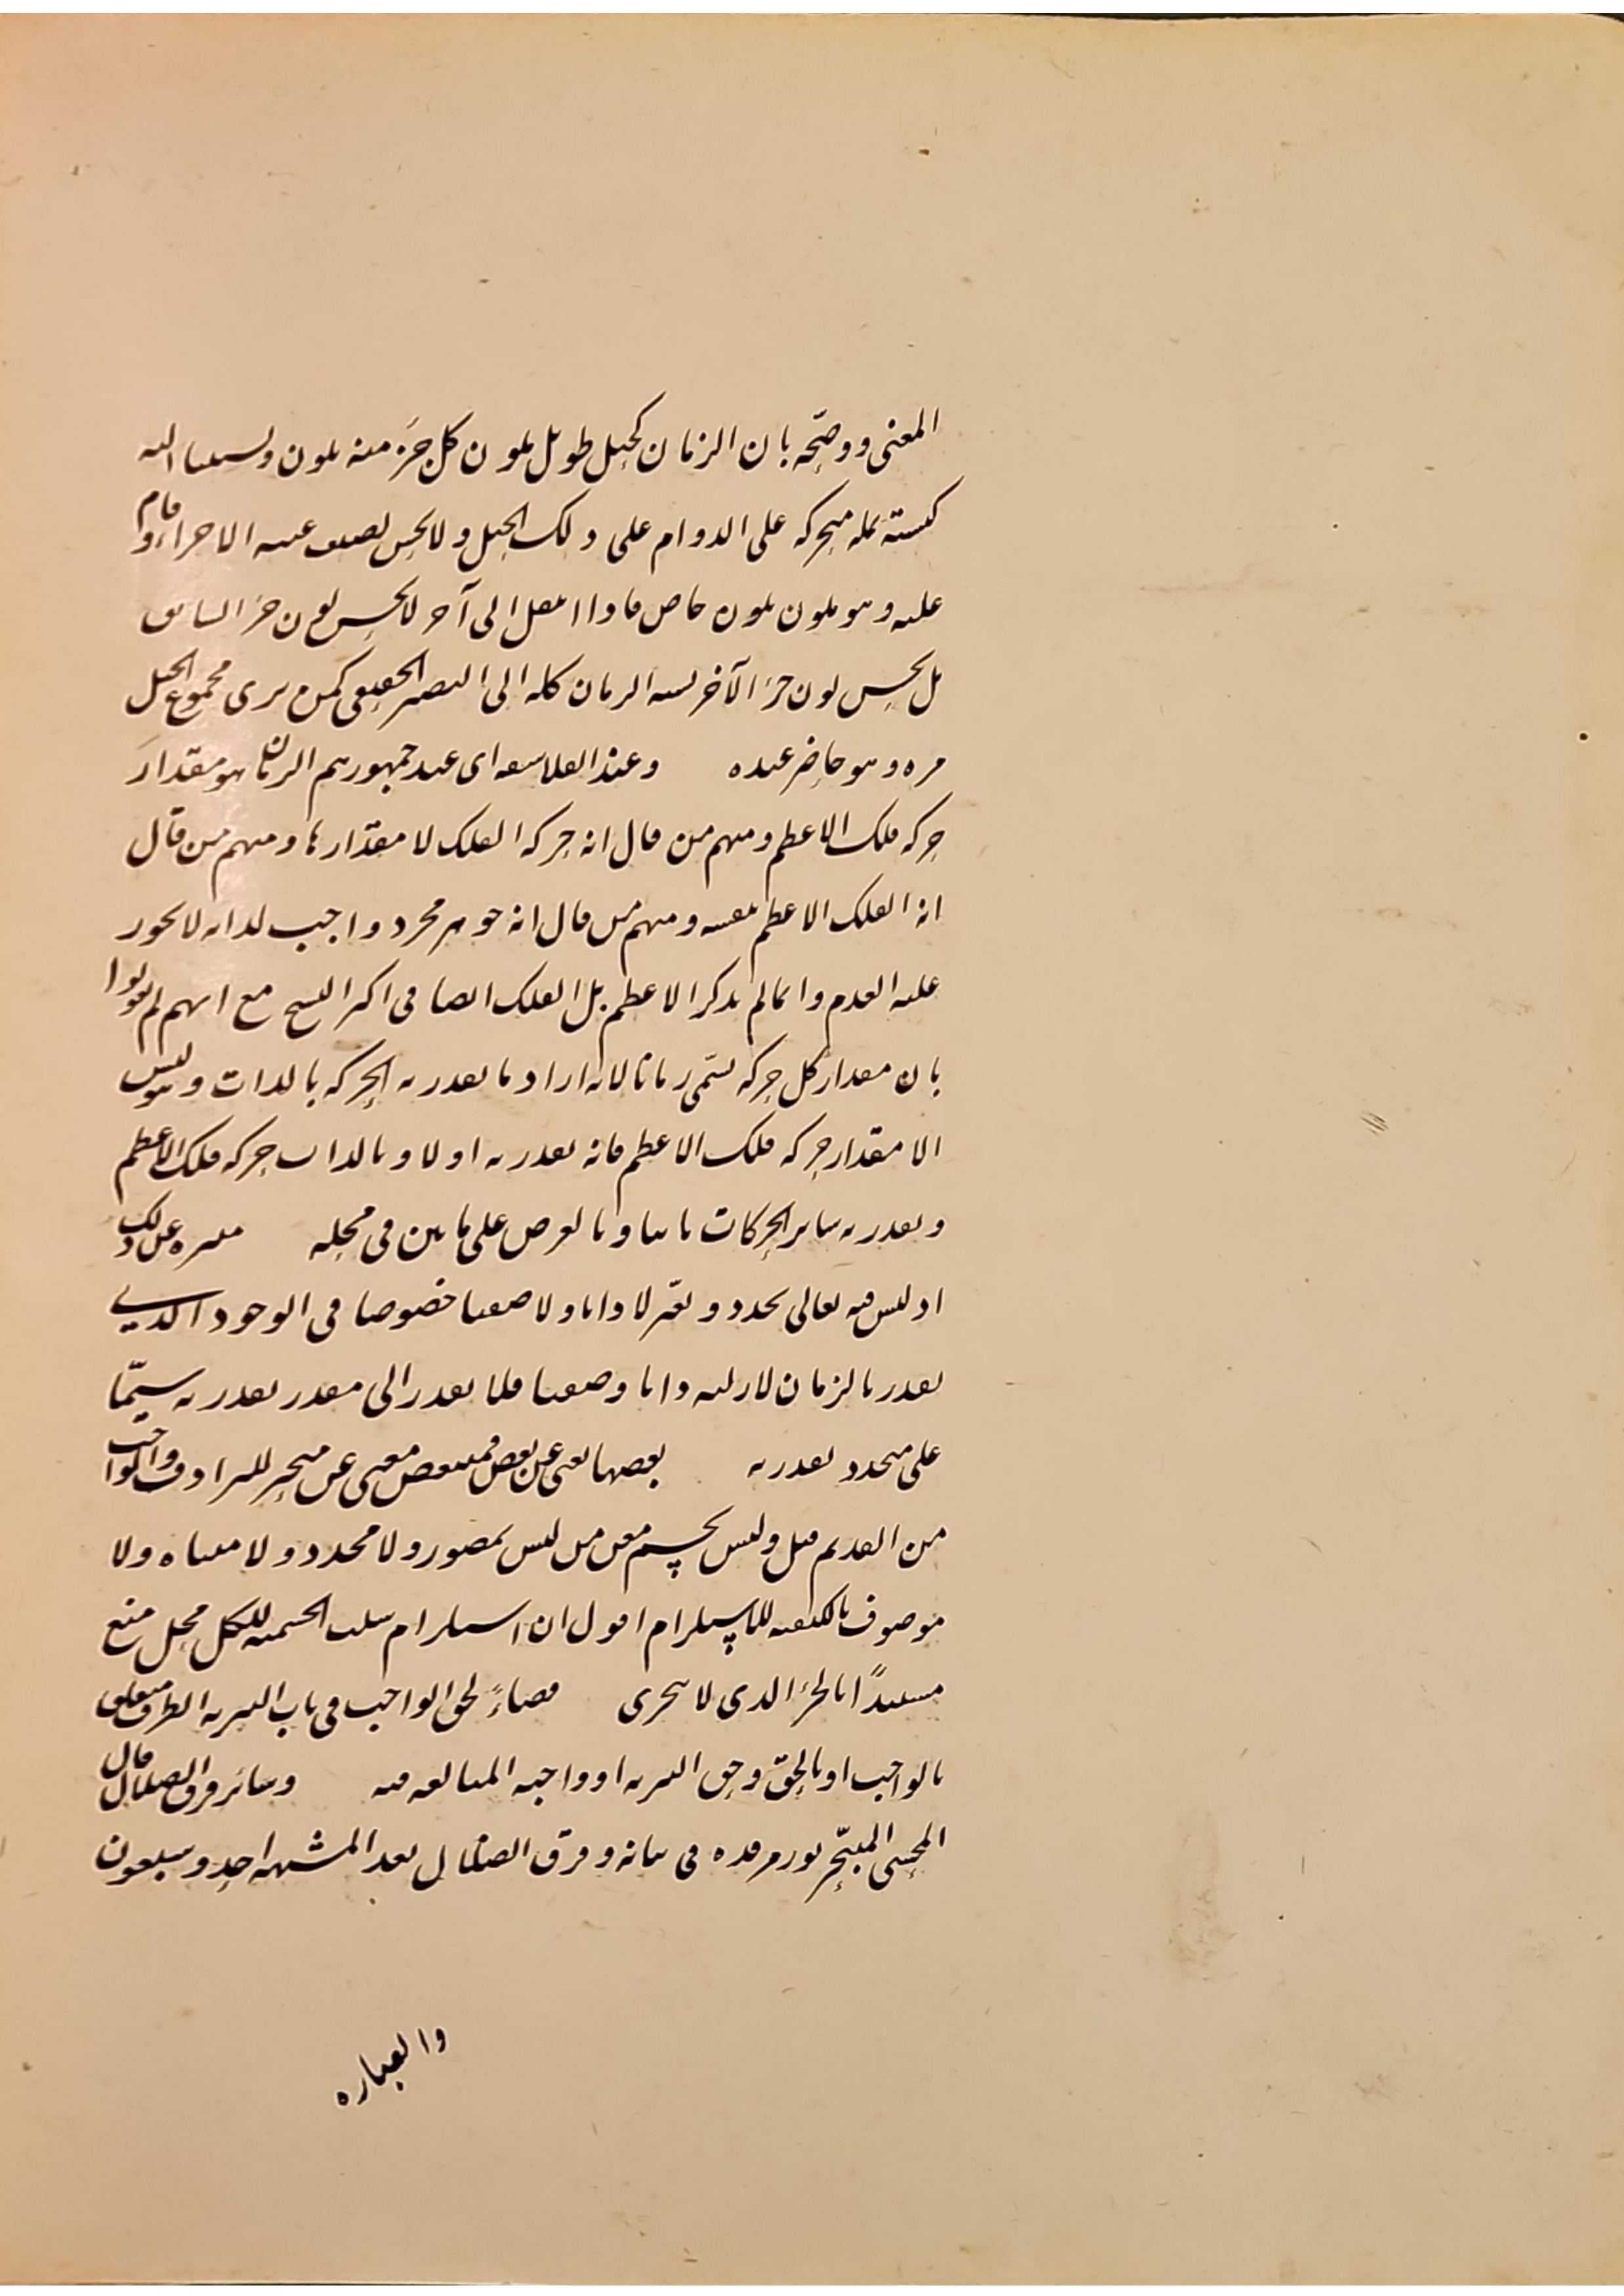 المعنى ووضحه بان الزمان كحبل طويل يلون كل جزء منه بلون ونسبتنا اليه
كنسبة نملة متحركة على الدوام على ذلك الحبل ولا يحس لضعف عينه الا جزاء وقام
عليه وهو ملون بلون خاص فاذا انتقل الى آخر لا يحس لون جزء السابق
بل يحس لون جزء الآخر نسبة الزمان كله الى البصير الحقيقي كمن يرى مجموع الحبل
مرة وهو حاضر عنده وعند الفلاسفة اى عند جمهورهم الزمان هو مقدار
حركة فلك الاعظم ومنهم من قال انه حركة الفلك لا مقدارها ومنهم من قال
انه الفلك الاعظم نفسه ومنهم من قال انه جوهر مجرد واجب لذاته لا يجوز
عليه العدم وانما لم يذكر الاعظم بل الفلك ايضا في اكثر النسخ مع انهم لم يقولوا
بان مقدار كل حركة يسمى زمانا لانه اراد ما يقدر به الحركة بالذات وهو ليس
الا مقدار حركة فلك الاعظم فانه يقدر به اولا وبالذات حركة فلك الاعظم
ويقدر به سائر الحركات ثانيا وبالعرض على ما بين في محله منزه عن ذلك
اذ ليس فيه تعالى تجدد وتغير لا ذاتا ولا صفتا خصوصا في الوجود الذي
يقدر بالزمان لازليه ذاتا وصفتا فلا يقدر الى مقدر يقدر به سيما
على متجدد يقدر به بعضها يعنى عن بعض فمتبعض مغنى عن متحيز للترادف والواجب
من القديم قيل وليس بجسم مغن من ليس بمصور ولا محدد ولا متناه ولا
موصوف بالكيفية للاستلزام اقول ان استلزام سلب الجسمية للكل محل منع
مستندا بالجزء الذى لا يتجزى قضاءً لحق الواجب في باب التنزيه الظرف متعلق
بالواجب او بالحق وحق التنزيه او واجبه المبالغة فيه وسائر فرق الضلال قال
المحشى المتبحر نور مرقده في بيانه وفرق الضلال بعد المشبهة احد وسبعون
والعبارة